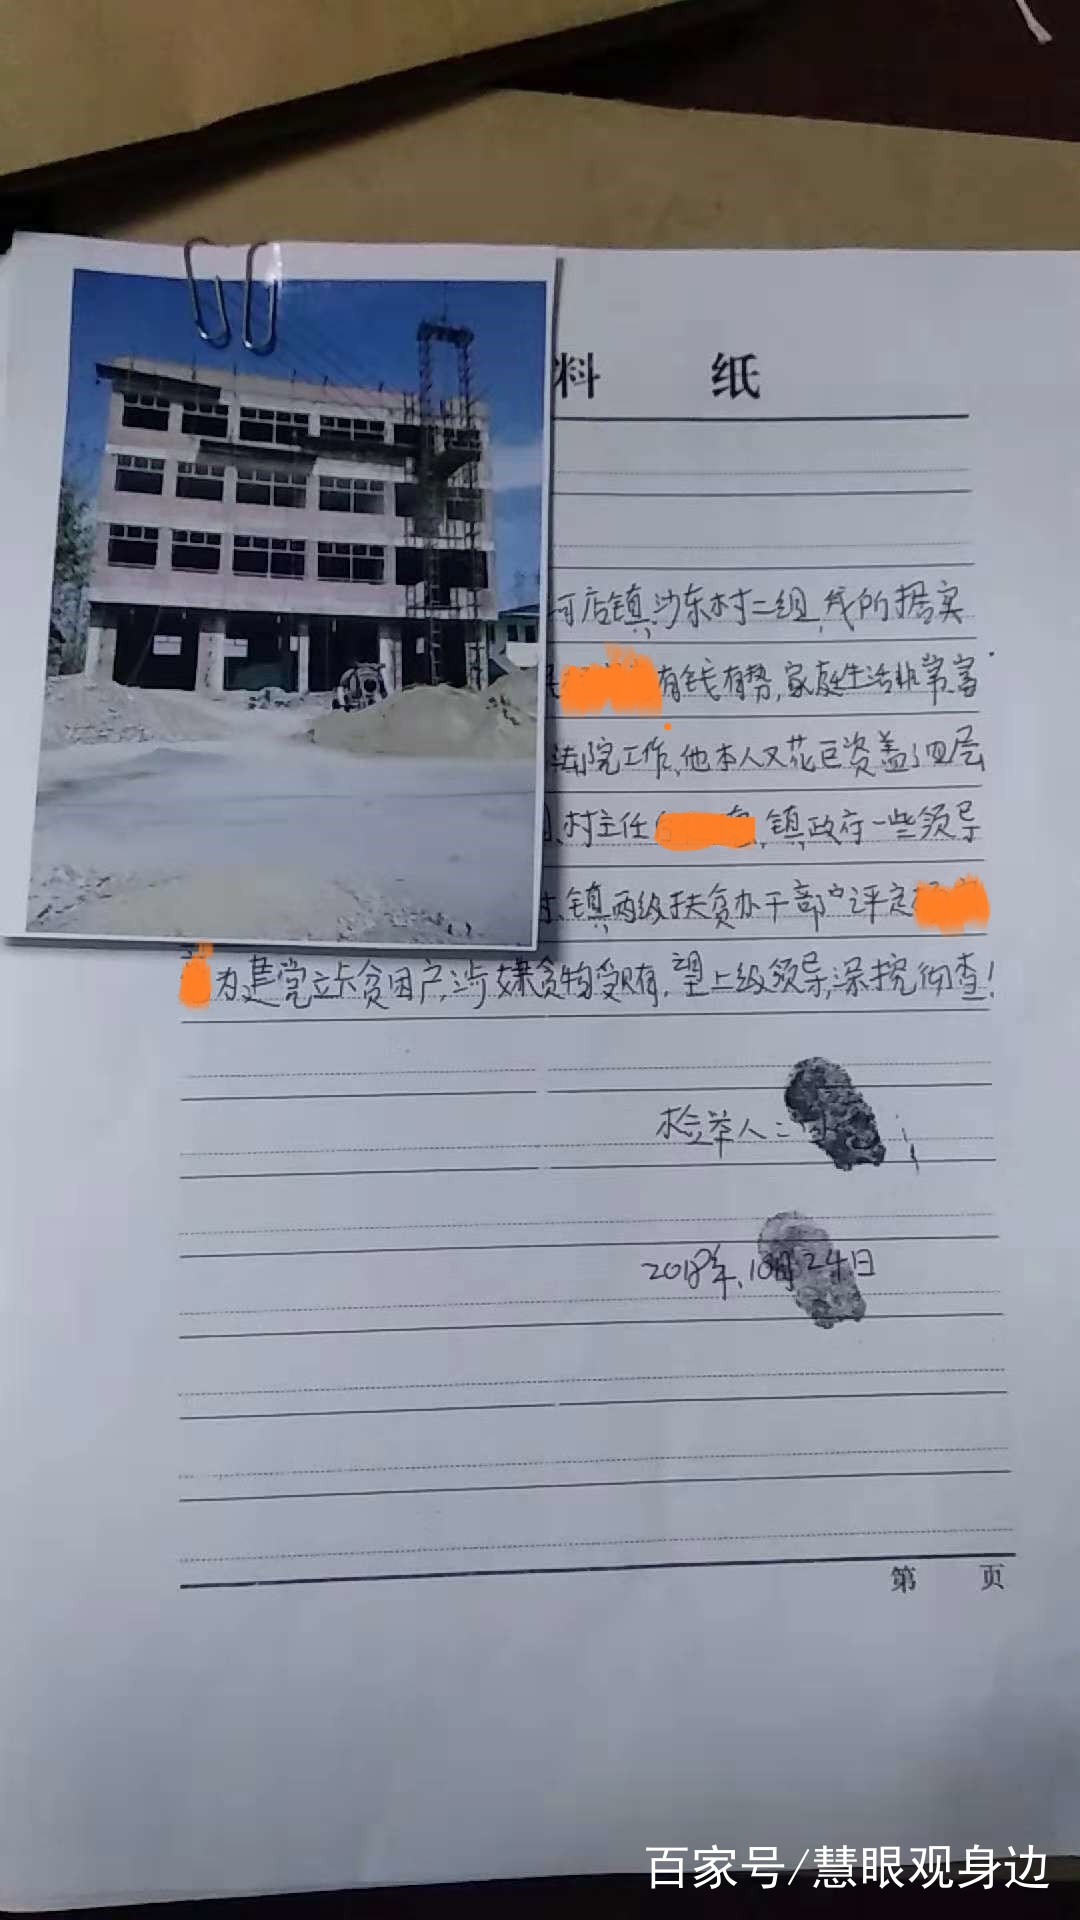 料 纸
河店镇沙东村二组,我所据实
有钱有势,家庭生活非常富
法院工作,他本人又花巨资盖了四层
村主任 ,镇政府一些领导
镇两级扶贫办干部评定
为建党立卡贫困户,涉嫌贪物受贿,望上级领导,深挖彻查!
检举人:
2018年,10月24日
第 页
百家号/慧眼观身边